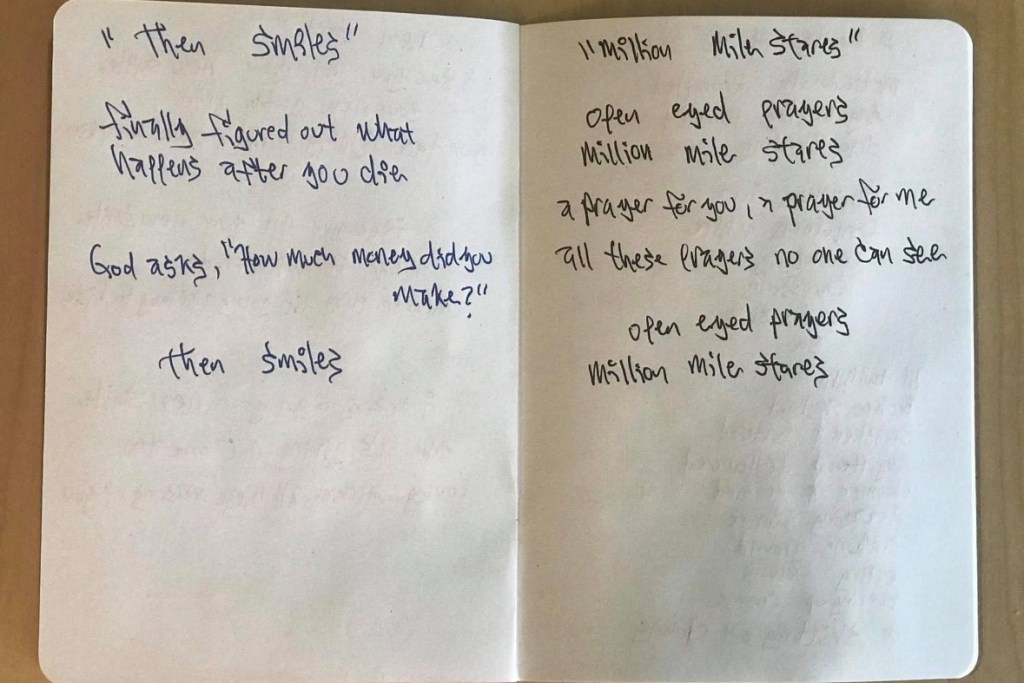 "then smiles"
finally figured out what
happens after you die
God asks, "How much money did you
make?"
then smiles
"million mile stares"
open eyed prayers
million mile stares
a prayer for you, a prayer for me
all these prayers no one can see
open eyed prayers
million mile stares